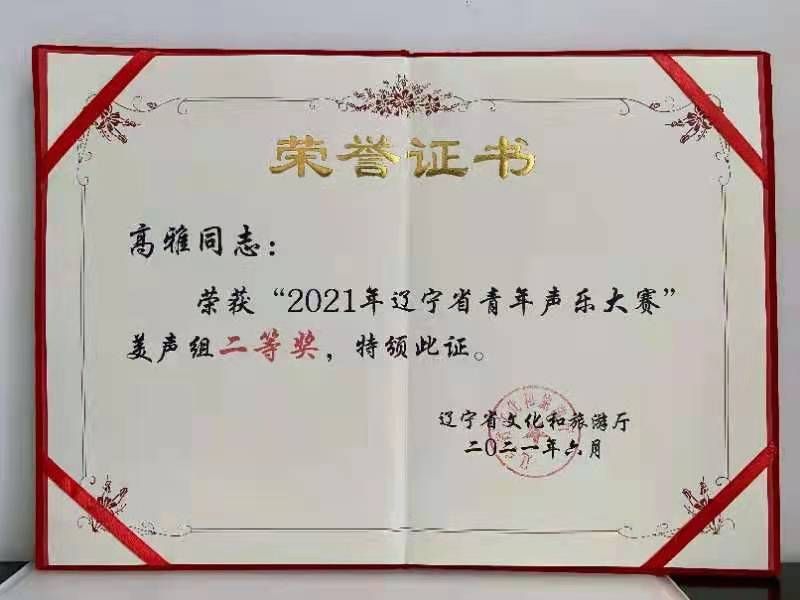 荣誉证书
高雅同志：
荣获“2021年辽宁省青年声乐大赛”
美声组二等奖，特颁此证。
辽宁省文化和旅游厅
二〇二一年六月